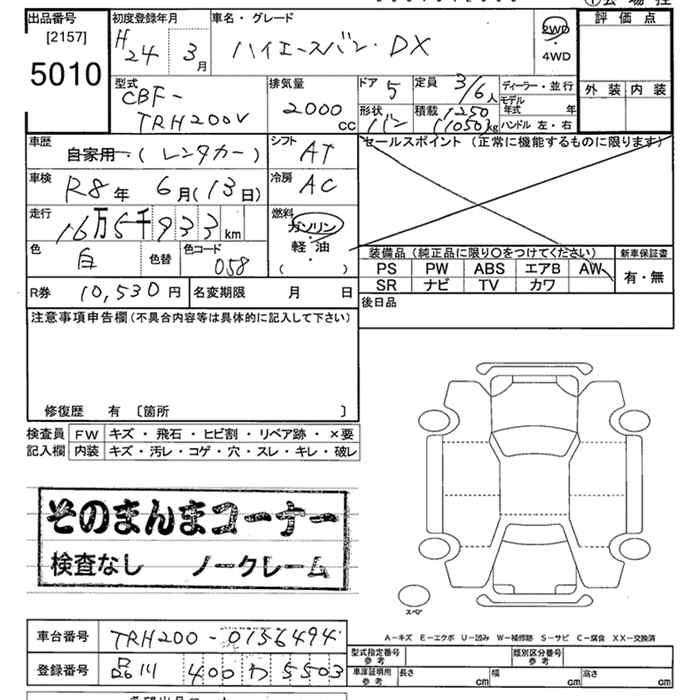 出品番号
[2157]
5010
初度登録年月
H24年 3月
車名・グレード
ハイエースバン・DX
2WD
・
4WD
評価点
外装 内装
型式
CBF-
TRH200V
排気量
2000
CC
ドア 5
定員 3/6人
ディーラー・並行
形状 バン
積載 1250
(1050)kg
モデル年式 年
ハンドル 左・右
車歴
自家用・(レンタカー)
シフト AT
セールスポイント (正常に機能するものに限ります)
車検 R8年 6月(13日)
冷房 AC
走行 16万5千933km
燃料
ガソリン
・
軽油
・
( )
色 白 色替 色コード 058
装備品 (純正品に限り〇をつけてください)
新車保証書
PS PW ABS エアB AW
SR ナビ TV カワ
有・無
R券 10,530円 名変期限 月 日
後日品
注意事項申告欄 (不具合内容等は具体的に記入して下さい)
修復歴 有 〔箇所 〕
検査員 FW キズ・飛石・ヒビ割・リペア跡・×要
記入欄 内装 キズ・汚レ・コゲ・穴・スレ・キレ・破レ
そのまんまコーナー
検査なし ノークレーム
スペア
A-キズ E-エクボ U-凹み W-補修跡 S-サビ C-腐食 XX-交換済
車台番号 TRH200-0156494
型式指定番号 参考
類別区分番号 参考
登録番号 品川 400 わ 5503
車庫証明用 参考 長さ cm 幅 cm 高さ cm